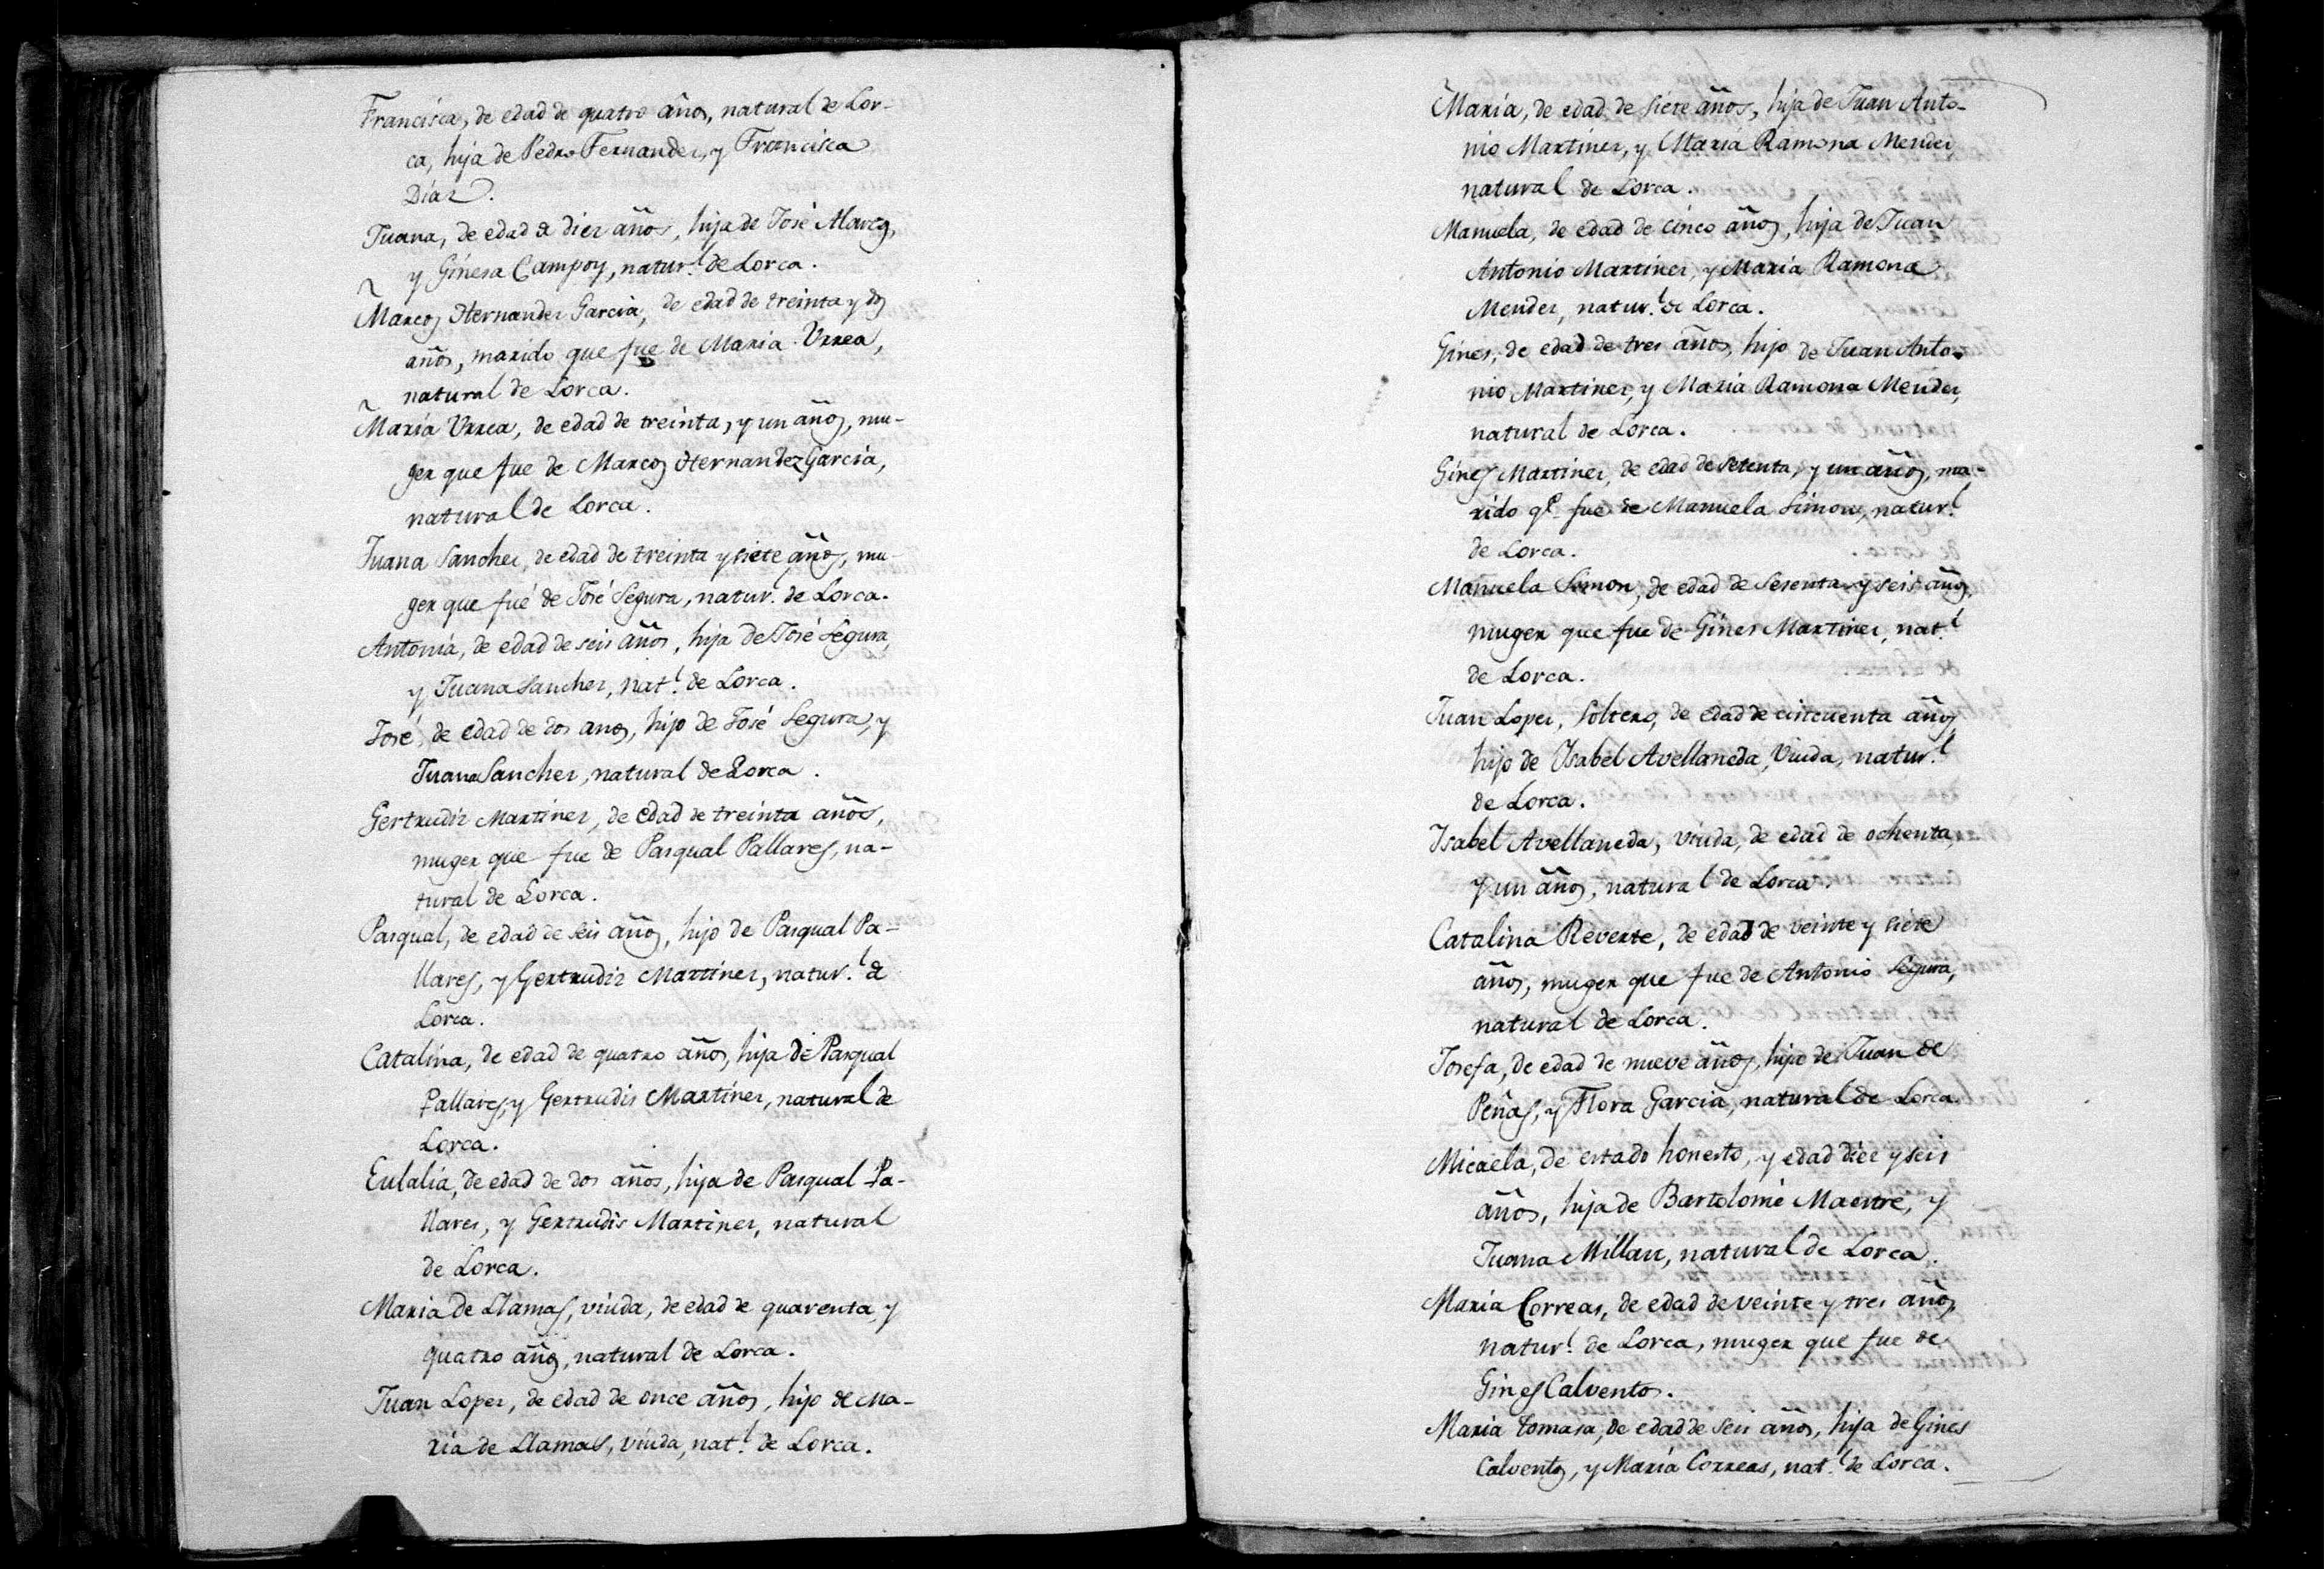 Francisca, de edad de quatro años, natural de Lor-
ca, hija de Pedro Fernandez, y Francisca
Díaz.
Juana, de edad de diez años, hija de José Alarcos,
y Ginesa Campoy, natur.l de Lorca.
Marcos Hernandez Garcia, de edad de treinta y dos
años, marido que fue de Maria Urrea,
natural de Lorca.
María Urrea, de edad de treinta, y un años, mu-
ger que fue de Marcos Hernandez Garcia,
natural de Lorca.
Juana Sanchez, de edad de treinta y siete años, mu-
ger que fué de José Segura, natur.l de Lorca.
Antonia, de edad de seis años, hija de José Segura,
y Juana Sanchez, nat.l de Lorca.
José, de edad de dos anos, hijo de José Segura, y
Juana Sanchez, natural de Lorca.
Gertrudis Martinez, de edad de treinta años,
muger que fue de Pasqual Pallares, na-
tural de Lorca.
Pasqual, de edad de seis años, hijo de Pasqual Pa-
llares, y Gertrudis Martinez, natur.l de
Lorca.
Catalina, de edad de quatro años, hija de Pasqual
Pallares, y Gertrudis Martinez, natural de
Lorca.
Eulalia, de edad de dos años, hija de Pasqual Pa-
llares, y Gertrudis Martinez, natural
de Lorca.
Maria de Llamas, viuda, de edad de quarenta, y
quatro años, natural de Lorca.
Juan Lopez, de edad de once años, hijo de Ma-
ria de Llamas, viuda, nat.l de Lorca.
María, de edad de siete años, hija de Juan Anto-
nio Martinez, y María Ramona Mendez
natural de Lorca.
Manuela, de edad de cinco años, hija de Juan
Antonio Martinez, y Maria Ramona
Mendez, natur.l de Lorca.
Gines, de edad de tres años, hijo de Juan Anto-
nio Martinez, y Maria Ramona Mendez,
natural de Lorca.
Gines Martinez, de edad de setenta, y un años, ma-
rido q.e fue de Manuela Simon, natur.l
de Lorca.
Manuela Simon, de edad de sesenta y seis años,
muger que fue de Gines Martinez, nat.l
de Lorca.
Juan Lopez, soltero, de edad de cincuenta años,
hijo de Ysabel Avellaneda, Viuda, natur.l
de Lorca.
Isabel Avellaneda, viuda, de edad de ochenta,
y un años, natural de Lorca.
Catalina Reverte, de edad de veinte y siete
años, muger que fue de Antonio Segura,
natural de Lorca.
Josefa, de edad de nueve años, hijo de Juan de
Peñas, y Flora Garcia, natural de Lorca.
Micaela, de estado honesto, y edad diez y seis
años, hija de Bartolomé Maestre, y
Juana Millan, natural de Lorca.
Maria Correas, de edad de veinte y tres años,
natur.l de Lorca, muger que fue de
Gines Calventos.
Maria tomasa, de edad de seis años, hija de Gines
Calventos, y María Correas, nat.l de Lorca.